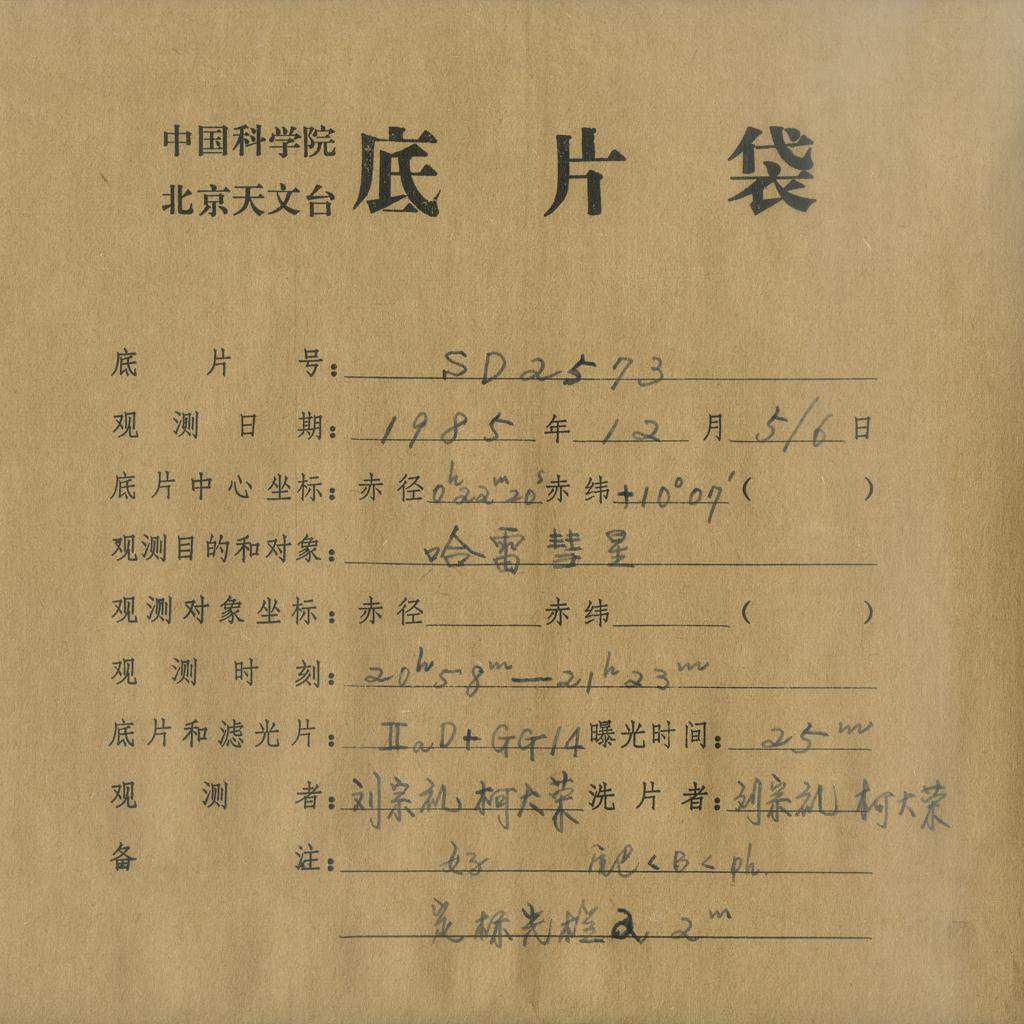 中国科学院
北京天文台
底片袋
底片号: SD2573
观测日期: 1985年12月5/6日
底片中心坐标: 赤径0h22m20s赤纬+10°07′( )
观测目的和对象: 哈雷彗星
观测对象坐标: 赤径 赤纬 ( )
观测时刻: 20h58m—21h23m
底片和滤光片: ⅡaD+GG14 曝光时间: 25m
观测者: 刘宗礼 柯大荣 洗片者: 刘宗礼 柯大荣
备注: 好 <B<ph.
定标光 2m